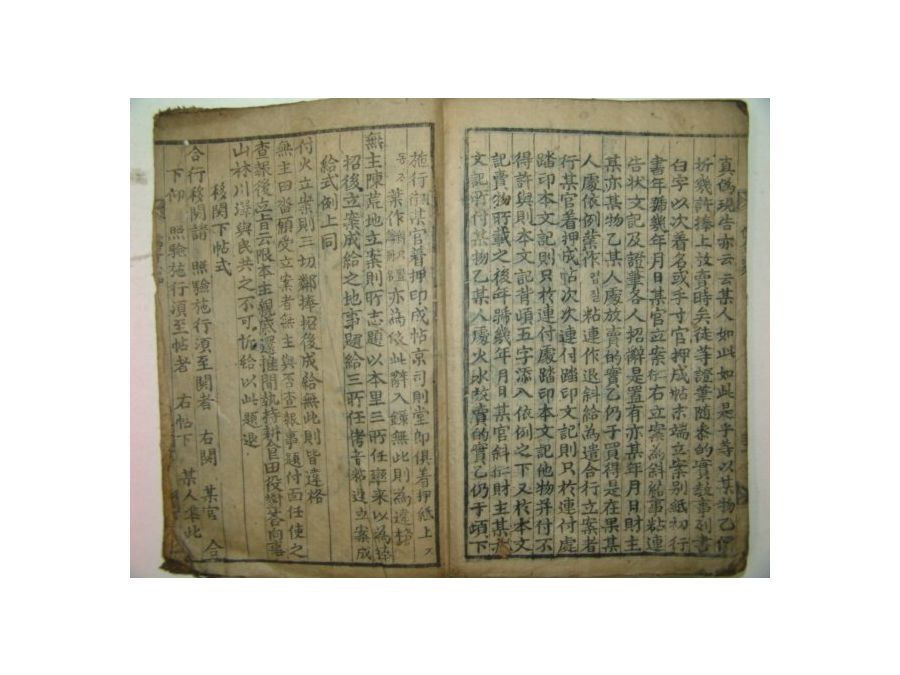 真偽現告亦云云某人如此如此是乎等以某物乙價
折幾許捧上放賣時矣徒等證筆隨參的實敎事列書
白字以次着名或手寸官押成帖末端立案別紙初行
書年號幾年月日某官立案右立案為斜給事粘連
告狀文記及證筆各人招辭是置有亦某年月日財主
某亦某物乙某人處放賣的實乙仍于買得是在果某
人處依例葉作粘連作退斜給為遣合行立案者
行某官着押成帖次次連付踏印文記則只於連付處
踏印本文記則只於連付處踏印本文記他物并付不
得許與則本文記背頉五字添入依例之下又於本文
記賣物所載之後年號幾年月日某官斜財主某亦
文記所付某物乙某人處永永放賣的實乙仍于頉下
施行某官着押印成帖京司則堂郎俱着押紙上
葉作亦為依此辭入錄無此則為違格
無主陳荒地立案則所志題以本里三所任率來以為
招後立案成給之地事題給三所任侤音粘連立案成
給式例上同
付火立案則三切鄰捧招後成給無此則皆違格
無主曰畓願受立案者無主與否查報事題付面任使之
查報後立旨云限本主親戚還推間執持耕食田役
山林川澤與民共之不可許給以此題退
移關下帖式
合行移關請 照驗施行須至關者 右關 某官
下仰 照驗施行須至帖者 右帖下 某人準此